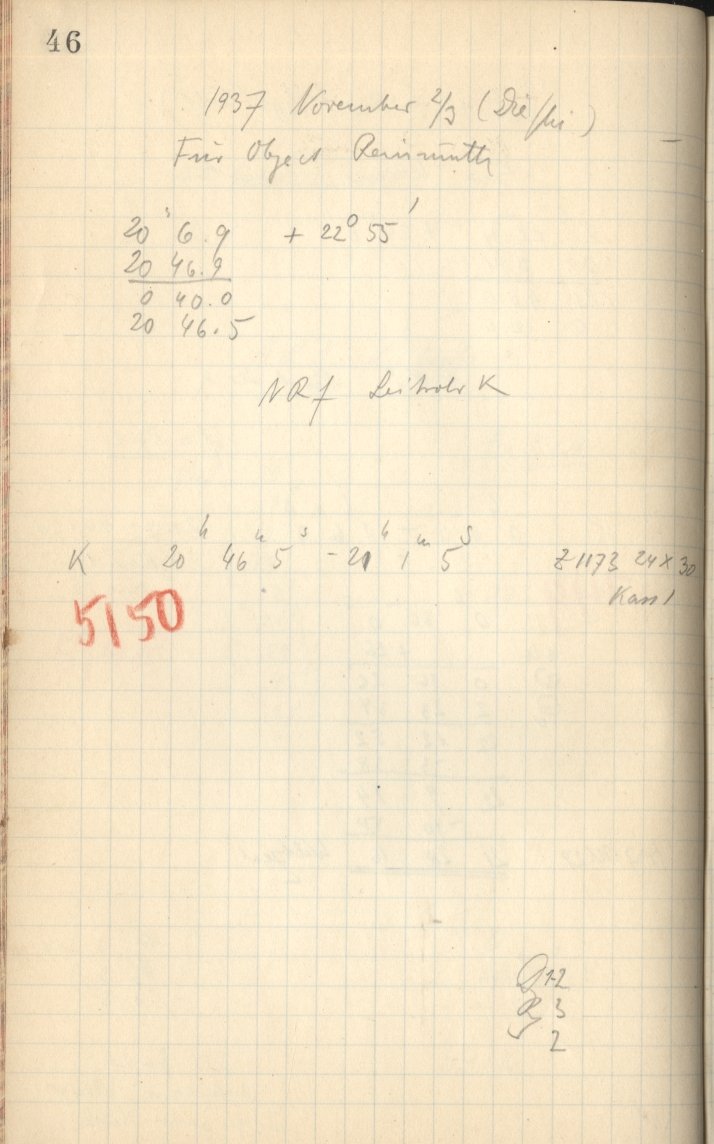 46
1937 November 2/3 (Die/Mi)
Für Object Reinmuth
20 6.9 + 22° 55'
20 46.9
0 40.0
20 46.5
NRf Leitrohr K
K 20h 46m 5s - 21h 1m 5s Z 1173 24 x 30
Kass 1
5150
1-2
R 3
2